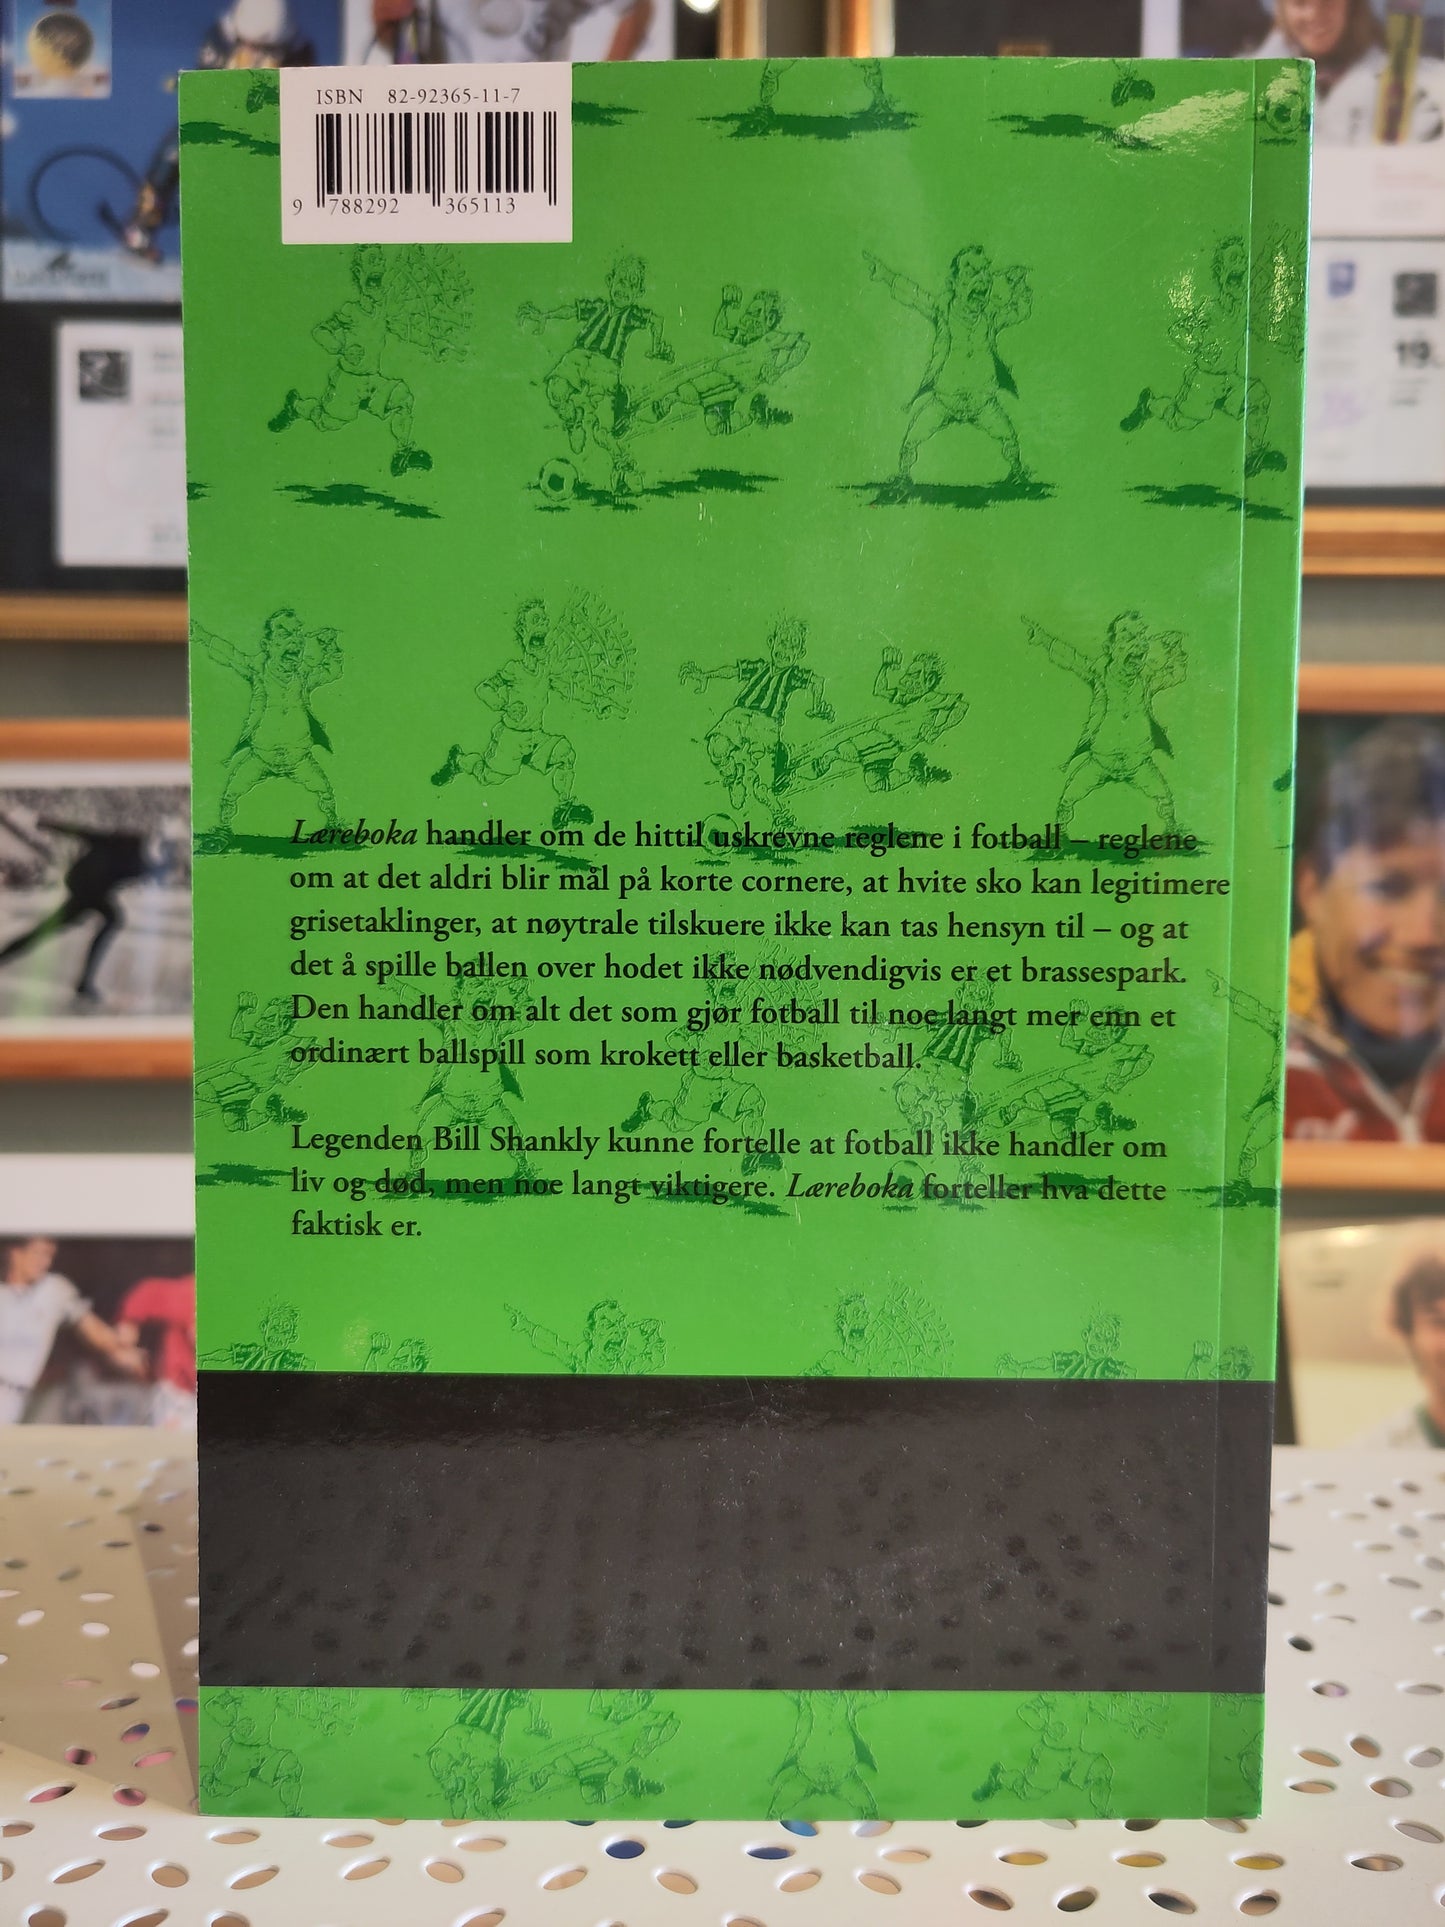 ISBN 82-92365-11-7
9 788292 365113
Læreboka handler om de hittil uskrevne reglene i fotball – reglene
om at det aldri blir mål på korte cornere, at hvite sko kan legitimere
grisetaklinger, at nøytrale tilskuere ikke kan tas hensyn til – og at
det å spille ballen over hodet ikke nødvendigvis er et brassespark.
Den handler om alt det som gjør fotball til noe langt mer enn et
ordinært ballspill som krokett eller basketball.
Legenden Bill Shankly kunne fortelle at fotball ikke handler om
liv og død, men noe langt viktigere. Læreboka forteller hva dette
faktisk er.
19.